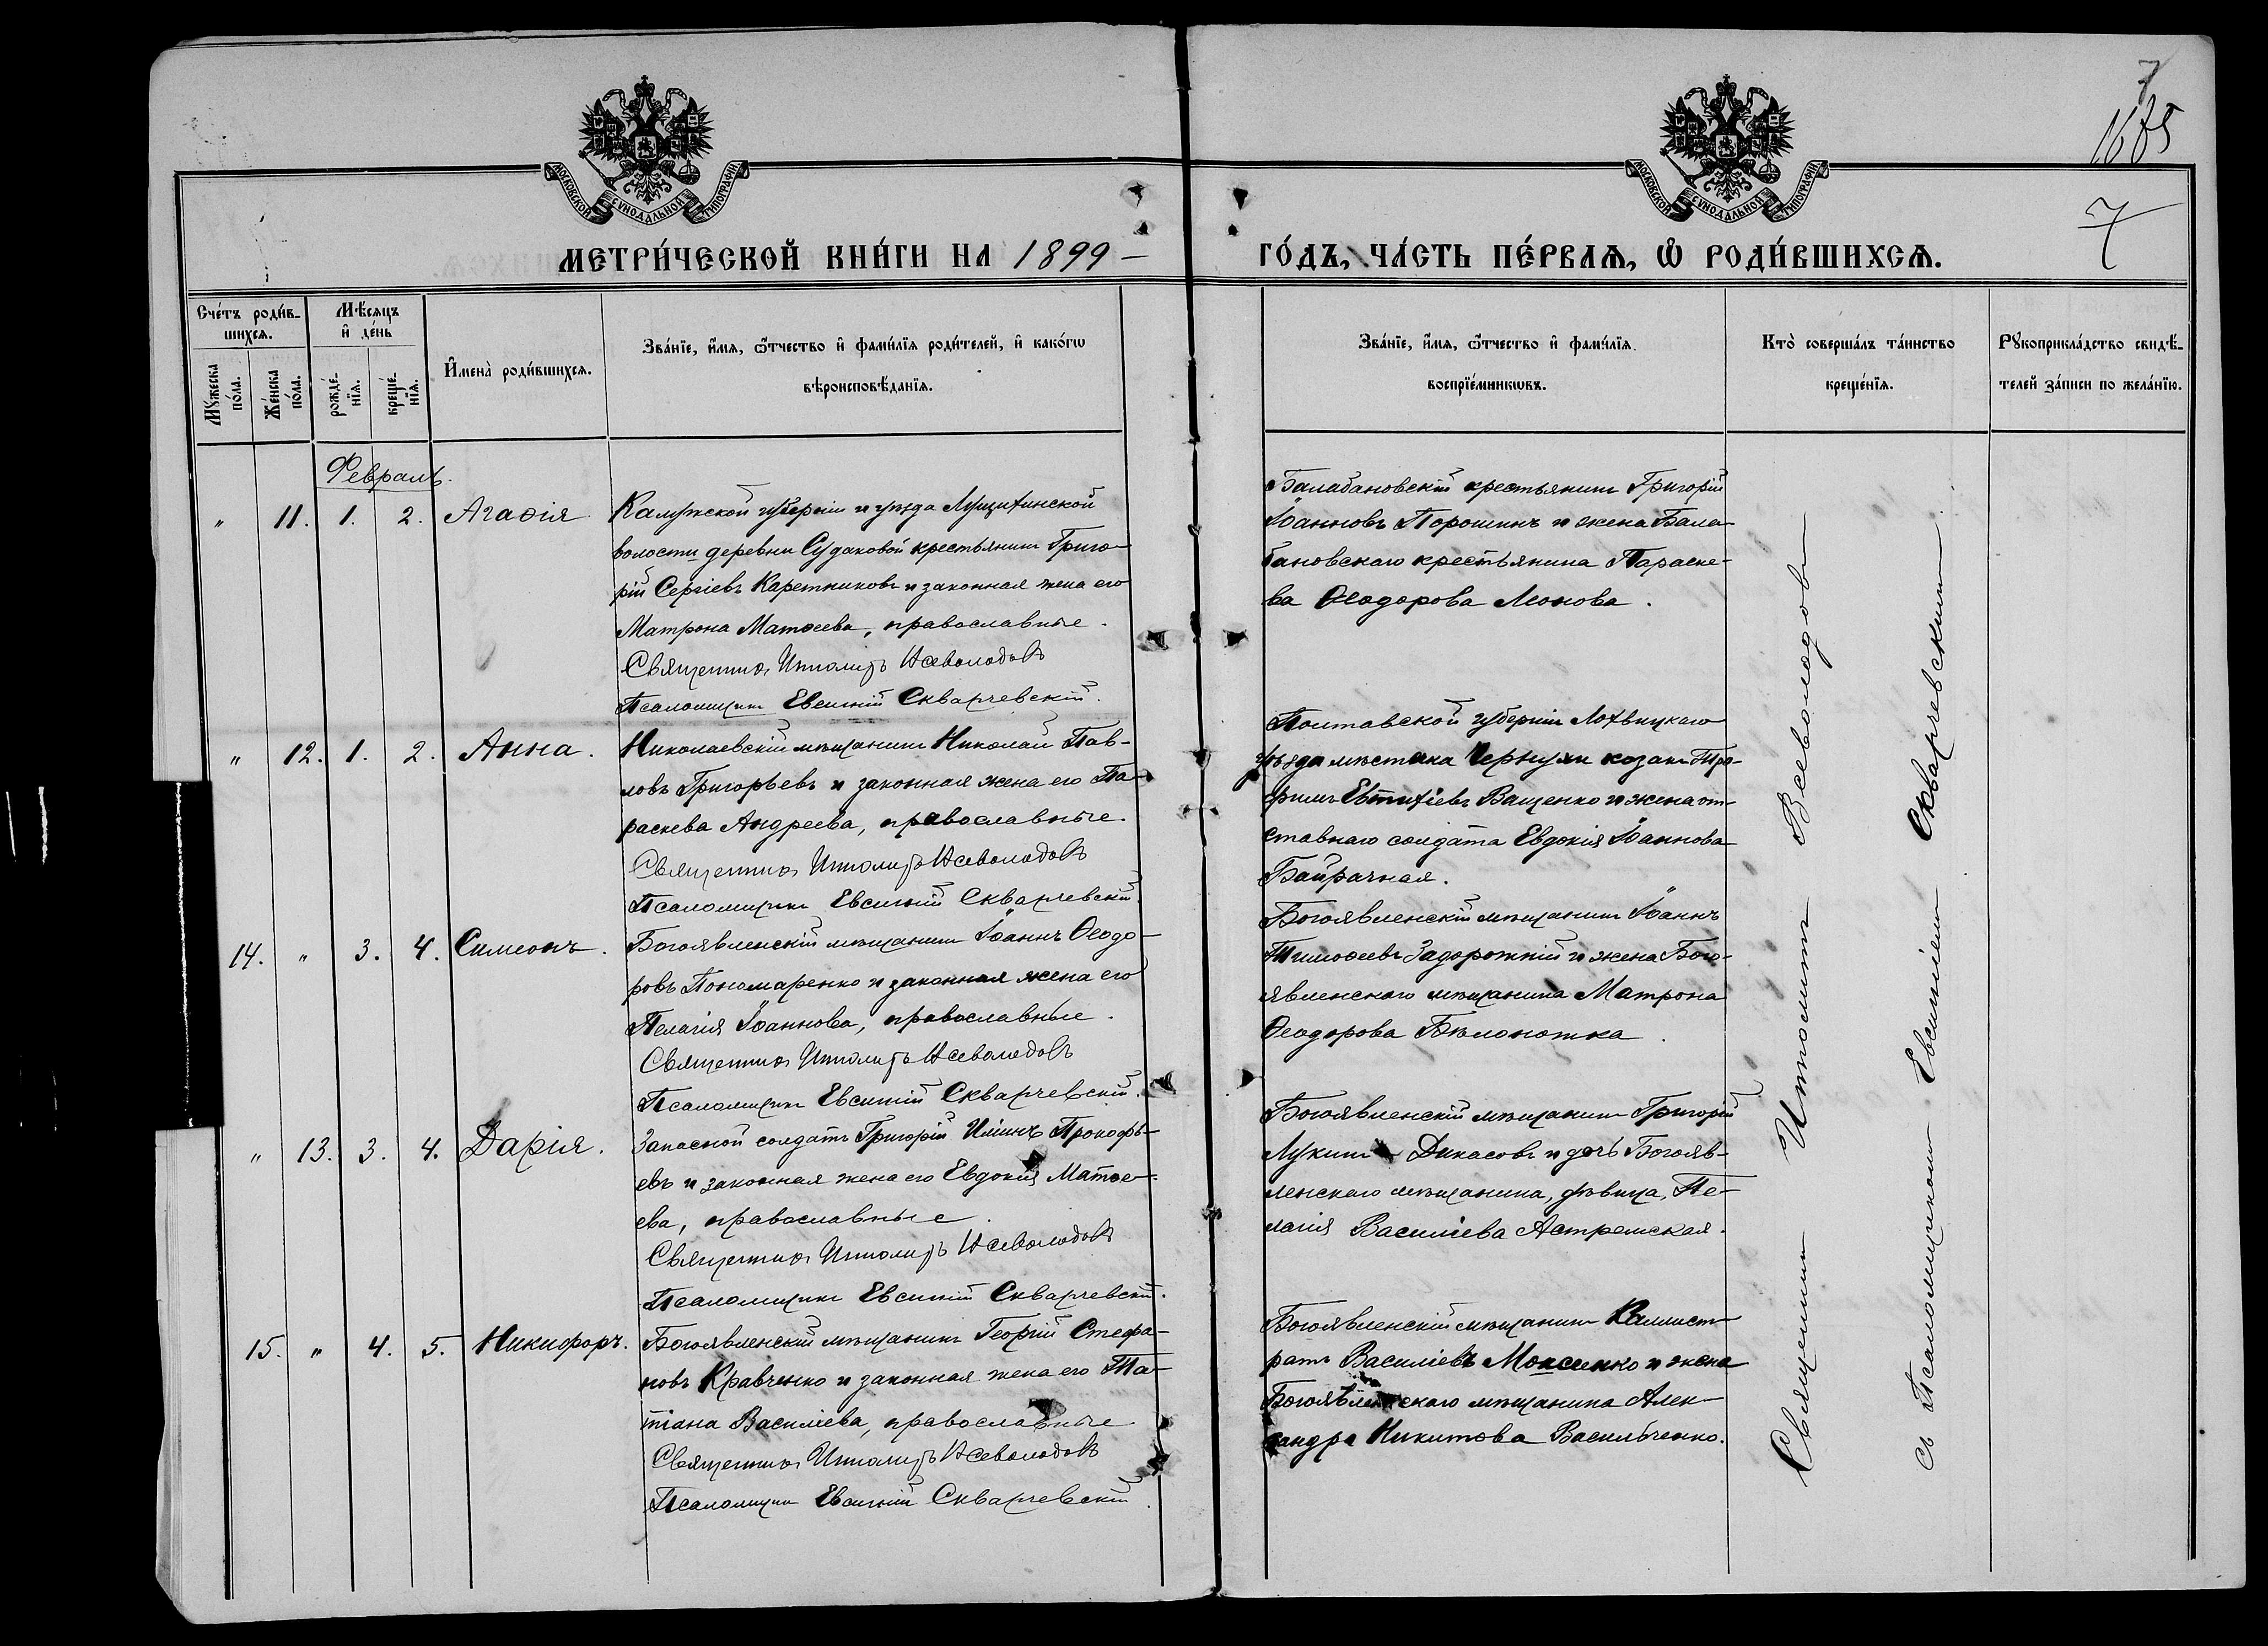 7
1685
7
МОСКОВСКОЙ СѴНОДАЛЬНОЙ ТИПОГРАФІИ
МОСКОВСКОЙ СѴНОДАЛЬНОЙ ТИПОГРАФІИ
МЕТРИ́ЧЕСКОЙ КНИ́ГИ НА 1899 –
ГО́ДЪ, ЧА́СТЬ ПЕ́РВАѦ, Ѽ РОДИ́ВШИХСѦ.
Сче́тъ роди́в-
шихсѧ.
Мѣ́сяцъ
и҆ де́нь
Мꙋ́жеска
по́ла.
Же́нска
по́ла.
рожде́-
нїѧ.
креще́-
нїѧ.
И҆мена̀ роди́вшихсѧ.
Зва́нїе, и҆́мѧ, ѻ҆́тчество и҆ фами́лїѧ роди́телей, и҆ како́гѡ
вѣроисповѣ́данїѧ.
Зва́нїе, и҆́мѧ, ѻ҆́тчество и҆ фами́лїѧ
воспрїе́мникѡвъ.
Кто̀ соверша́лъ та́инство
креще́нїѧ.
Рꙋкоприкла́дство свидѣ́-
телей за́писи по жела́нїю.
Февраль.
" 11. 1. 2. Агаѳія
Калужской губерніи и уѣзда
волости деревни Судаковой крестьянинъ Григо-
рій Сергіевъ Каретниковъ и законная жена его
Матрона Матѳеева, православные.
Священникъ Ипполитъ Всеволодовъ
Псаломщикъ Евсигній Скварчевскій.
Балабановскій крестьянинъ Григорій
Іоанновъ Порошинъ и жена Бала-
бановскаго крестьянина Параске-
ва Ѳеодорова Леонова.
" 12. 1. 2. Анна.
Николаевскій мѣщанинъ Николай Пав-
ловъ Григорьевъ и законная жена его Па-
раскева Андреева, православные.
Священникъ Ипполитъ Всеволодовъ
Псаломщикъ Евсигній Скварчевскій.
Полтавской губерніи Лохвицкаго
уѣзда мѣстечка Чернухи козакъ Тро-
фимъ Евтихіевъ Ващенко и жена от-
ставнаго солдата Евдокія Іоаннова
Байрачная.
14. " 3. 4. Симеонъ.
Богоявленскій мѣщанинъ Іоаннъ Ѳеодо-
ровъ Пономаренко и законная жена его
Пелагія Іоаннова, православные.
Священникъ Ипполитъ Всеволодовъ
Псаломщикъ Евсигній Скварчевскій.
Богоявленскій мѣщанинъ Іоаннъ
Тимоѳеевъ Задорожній и жена Бого-
явленскаго мѣщанина Матрона
Ѳеодорова Бѣлоножка.
" 13. 3. 4. Дарія.
Запасной солдатъ Григорій Иліинъ Прокофь-
евъ и законная жена его Евдокія Матѳе-
ева, православные.
Священникъ Ипполитъ Всеволодовъ
Псаломщикъ Евсигній Скварчевскій.
Богоявленскій мѣщанинъ Григорій
Лукинъ Дикасовъ и дочь Богояв-
ленскаго мѣщанина, дѣвица, Пе-
лагія Василіева
15. " 4. 5. Никифоръ.
Богоявленскій мѣщанинъ Георгій Стефа-
новъ Кравченко и законная жена его Та-
тіана Василіева, православные
Священникъ Ипполитъ Всеволодовъ
Псаломщикъ Евсигній Скварчевскій.
Богоявленскій мѣщанинъ Каллист-
ратъ Василіевъ Моисеенко и жена
Богоявленскаго мѣщанина Алек-
сандра Никитова Васильченко.
Священникъ Ипполитъ Всеволодовъ
съ Псаломщикомъ Евсигніемъ Скварчевскимъ.